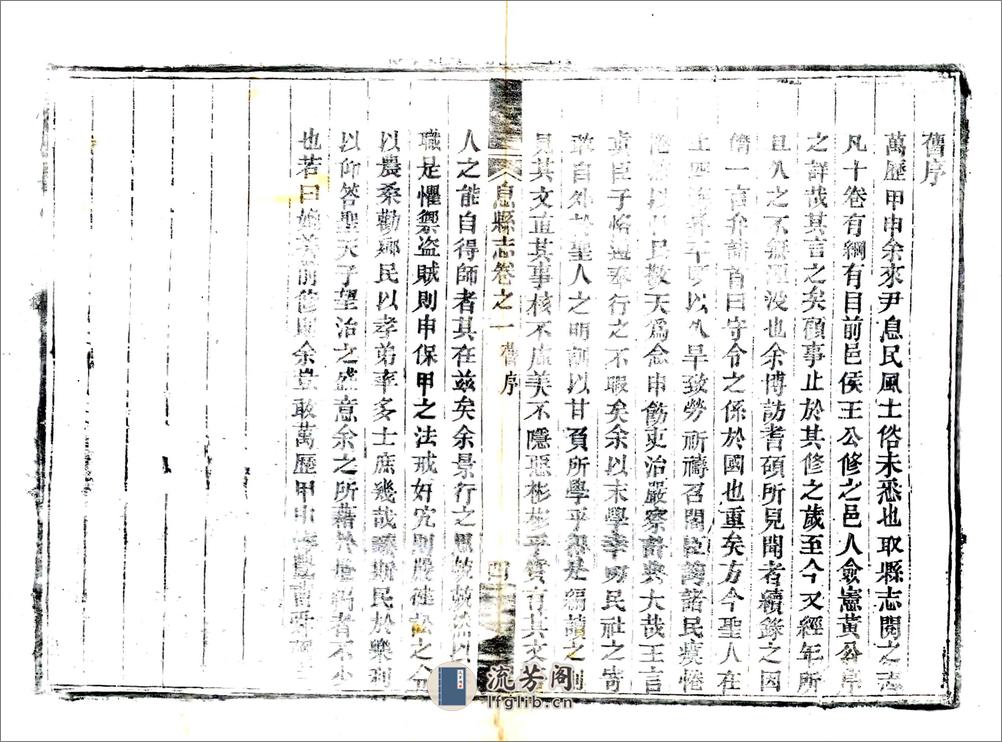 舊序
萬歷甲申余來尹息民風土俗未悉也取縣志閱之志
凡十卷有綱有目前邑侯王公修之邑人僉憲黃公
之詳哉其言之矣顧事止於其修之歲至今又經年所
且久之不無也余博訪耆碩所見聞者續錄之因
僃一言弁諸首曰守令之係於國也重矣方今聖人在
上四以旱致勞祈禱召閣臣諭諸民瘼惓
民敬天爲念申飭吏治嚴察哉王言
臣子恪遵奉行之不暇矣余以末學民社之寄
敢自外於聖人之明訓以甘負所學乎是編讀之則
見其文直其事核不虛美不隱惡彬彬乎實言其文
息縣志卷之一 舊序 四
人之能自得師者其在茲矣余景行之思以
職是懼禦盗賊則申保甲之法戒奸宄則嚴之分
以農桑勸鄉民以孝弟率多士庶幾哉斯民於樂利
以仰答聖天子望治之盛意余之所藉於者不少
也若曰前修則余豈敢萬歷甲申
流芳阁
lfglib.cn